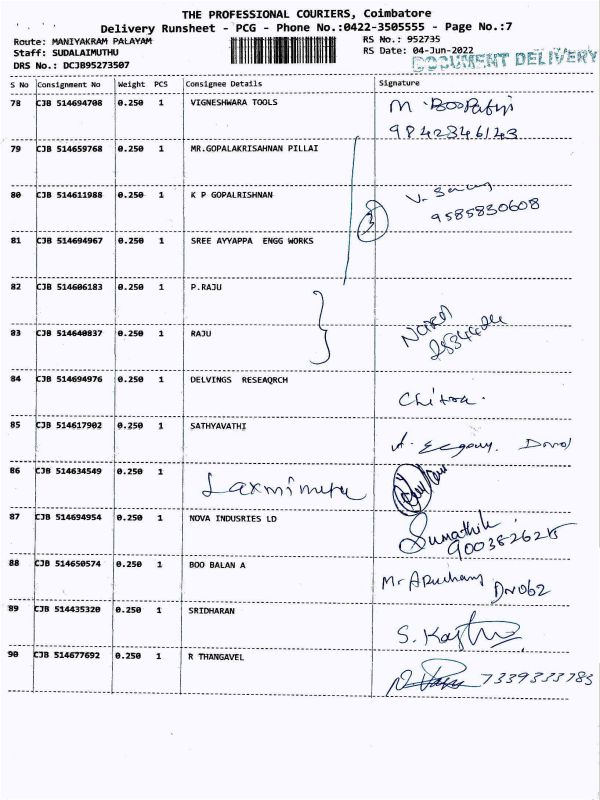 THE PROFESSIONAL COURIERS, Coimbatore
Delivery Runsheet - PCG - Phone No.:0422-3505555 - Page No.:7
Route: MANIYAKRAM PALAYAM RS No.: 952735
Staff: SUDALAIMUTHU RS Date: 04-Jun-2022
DOCUMENT DELIVERY
DRS No.: DCJB95273507
S No Consignment No Weight PCS Consignee Details Signature
78 CJB 514694708 0.250 1 VIGNESHWARA TOOLS
9842346143
79 CJB 514659768 0.250 1 MR.GOPALAKRISAHNAN PILLAI
80 CJB 514611988 0.250 1 K P GOPALRISHNAN
3 9585830608
81 CJB 514694967 0.250 1 SREE AYYAPPA ENGG WORKS
82 CJB 514606183 0.250 1 P.RAJU
83 CJB 514640837 0.250 1 RAJU
84 CJB 514694976 0.250 1 DELVINGS RESEAQRCH
Chitra.
85 CJB 514617902 0.250 1 SATHYAVATHI
86 CJB 514634549 0.250 1
87 CJB 514694954 0.250 1 NOVA INDUSRIES LD
Sumathi
9003826215
88 CJB 514650574 0.250 1 BOO BALAN A
89 CJB 514435320 0.250 1 SRIDHARAN
90 CJB 514677692 0.250 1 R THANGAVEL
7339333783